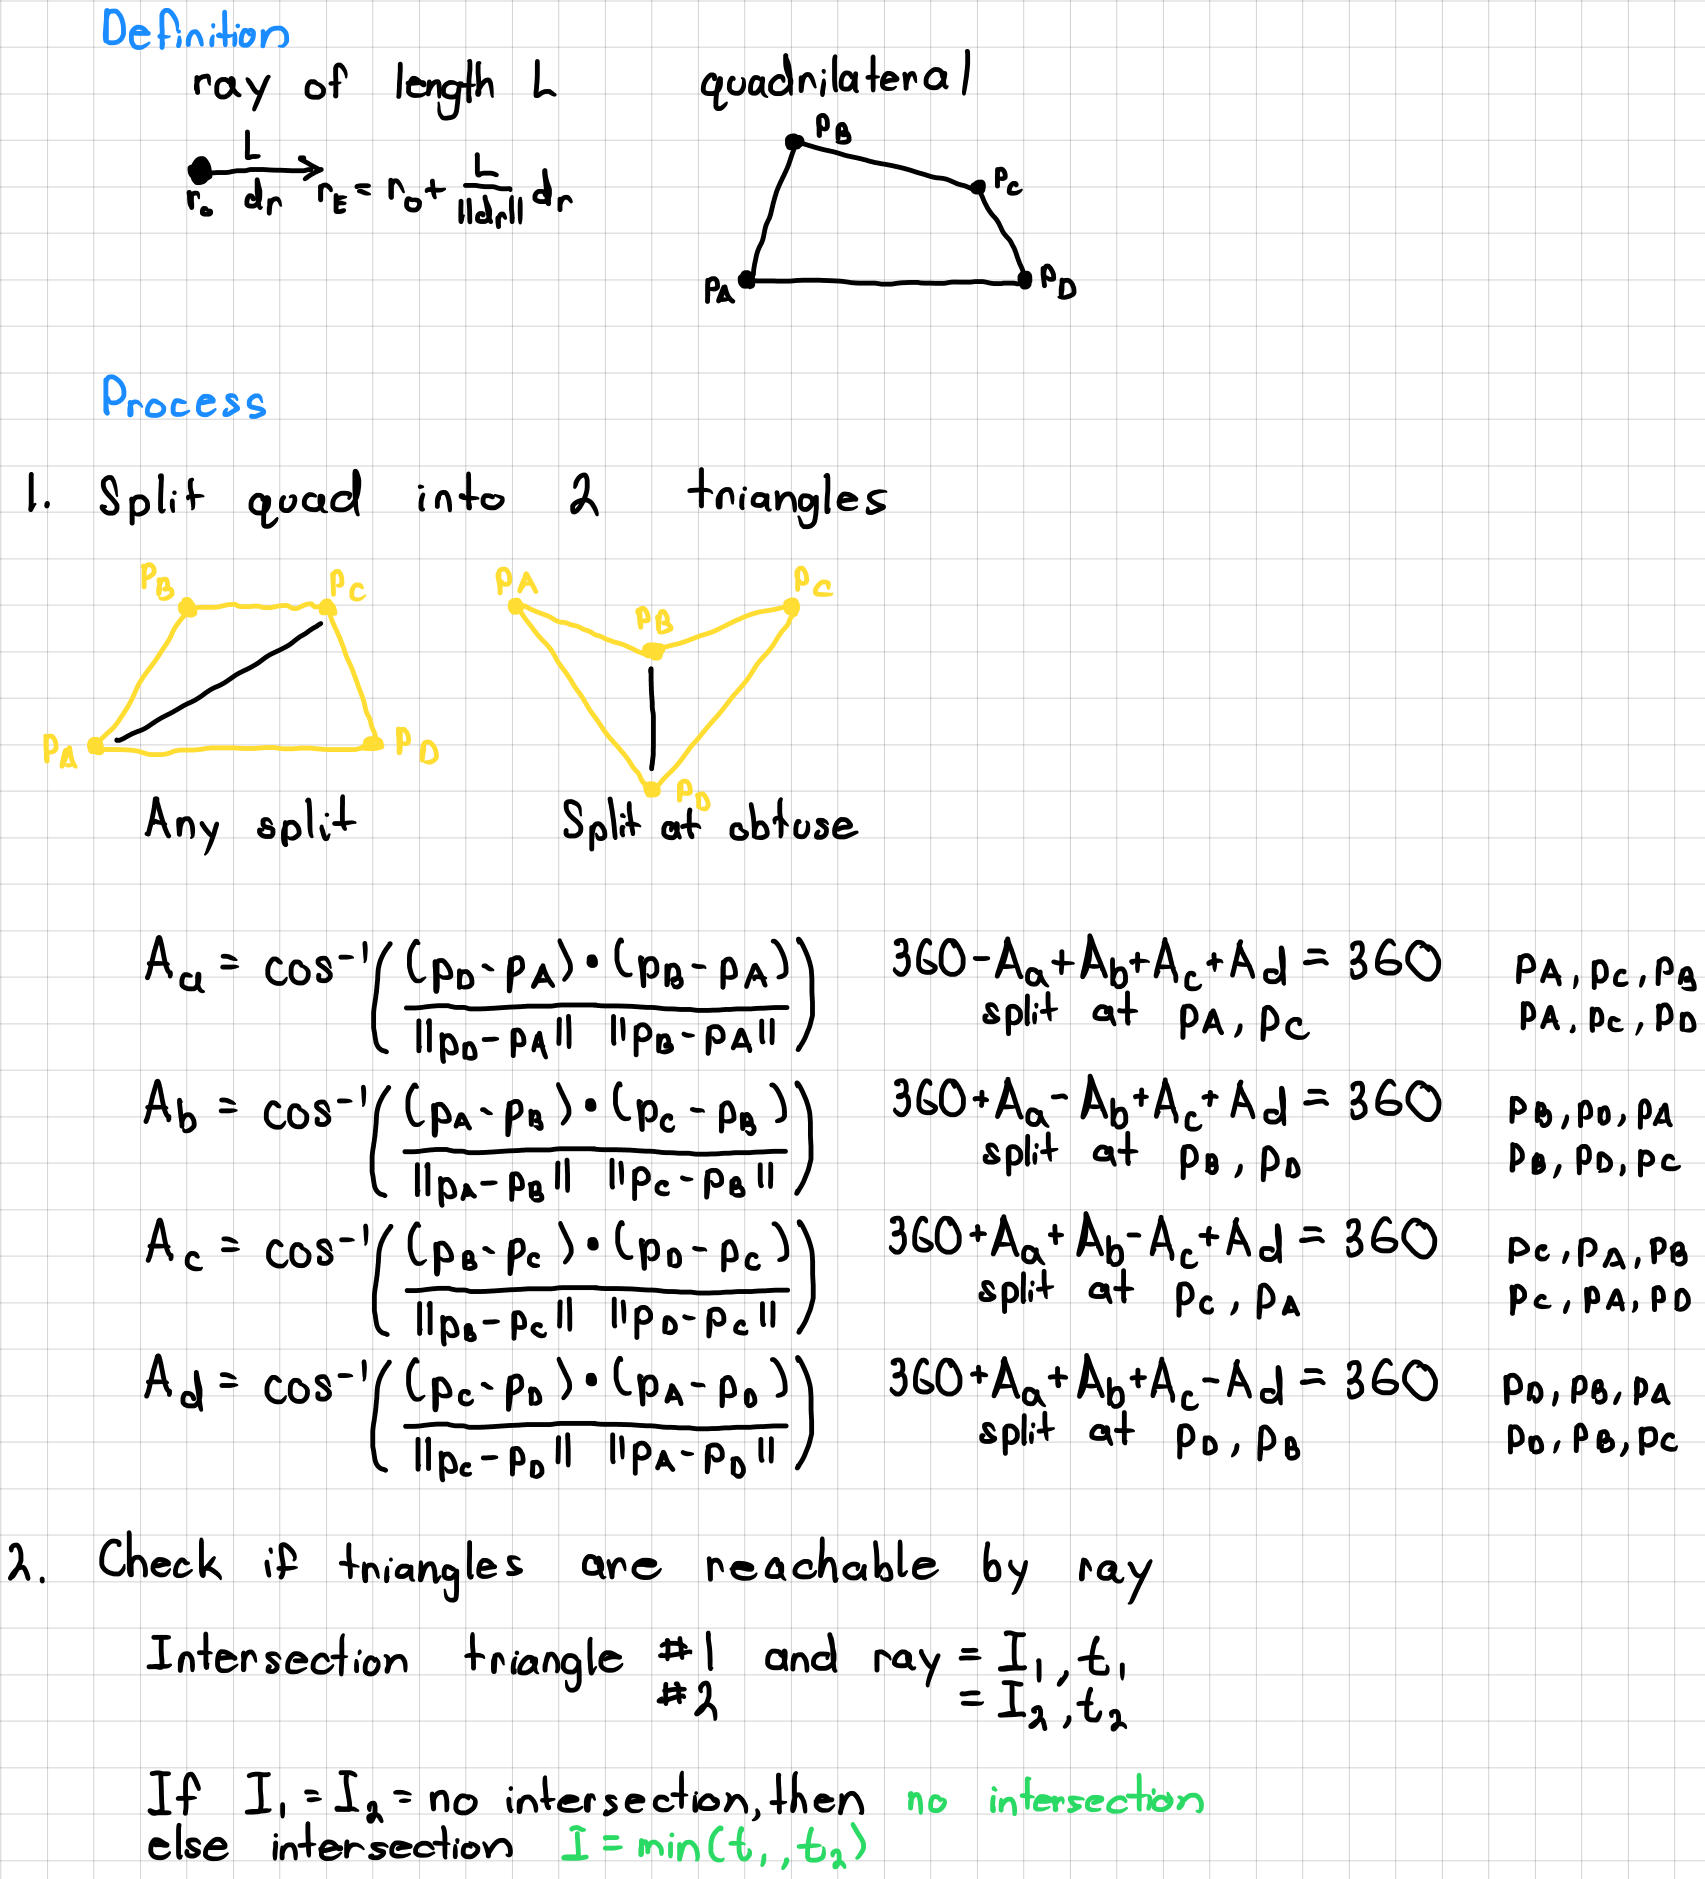 Definition
ray of length L quadrilateral
L
r₀ dᵣ r_E = r₀ + L/||dᵣ|| dᵣ
p_B
p_C
p_A
p_D
Process
1. Split quad into 2 triangles
p_B p_C p_A p_C
p_B
p_A p_D
p_D
Any split Split at obtuse
A_a = cos⁻¹( (p_D - p_A) • (p_B - p_A) / ||p_D - p_A|| ||p_B - p_A|| ) 360 - A_a + A_b + A_c + A_d = 360 p_A, p_C, p_B
split at p_A, p_C p_A, p_C, p_D
A_b = cos⁻¹( (p_A - p_B) • (p_C - p_B) / ||p_A - p_B|| ||p_C - p_B|| ) 360 + A_a - A_b + A_c + A_d = 360 p_B, p_D, p_A
split at p_B, p_D p_B, p_D, p_C
A_c = cos⁻¹( (p_B - p_C) • (p_D - p_C) / ||p_B - p_C|| ||p_D - p_C|| ) 360 + A_a + A_b - A_c + A_d = 360 p_C, p_A, p_B
split at p_C, p_A p_C, p_A, p_D
A_d = cos⁻¹( (p_C - p_D) • (p_A - p_D) / ||p_C - p_D|| ||p_A - p_D|| ) 360 + A_a + A_b + A_c - A_d = 360 p_D, p_B, p_A
split at p_D, p_B p_D, p_B, p_C
2. Check if triangles are reachable by ray
Intersection triangle #1 and ray = I₁, t₁
#2 = I₂, t₂
If I₁ = I₂ = no intersection, then no intersection
else intersection I = min(t₁, t₂)